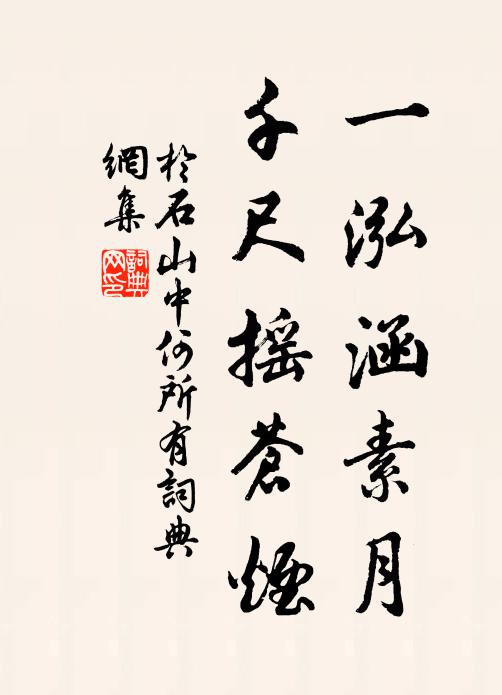 一泓涵素月
千尺摇蒼煙
於石山中何所有詞典
網集
詞典
网印